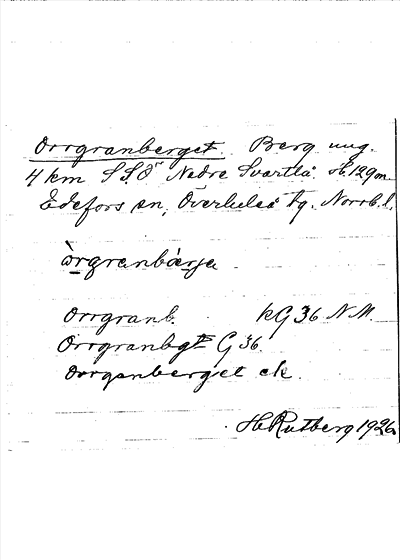 Orrgranberget. Berg ung.
4 km SSÖ Nedre Svartlå. H. 129 m.
Edefors sn, Överluleå tg. Norrb. l.
òrgranbàrja
Orrgranb. kG 36 N.M.
Orrgranbgt G 36.
Oorganberget ek.
H Rutberg 1926